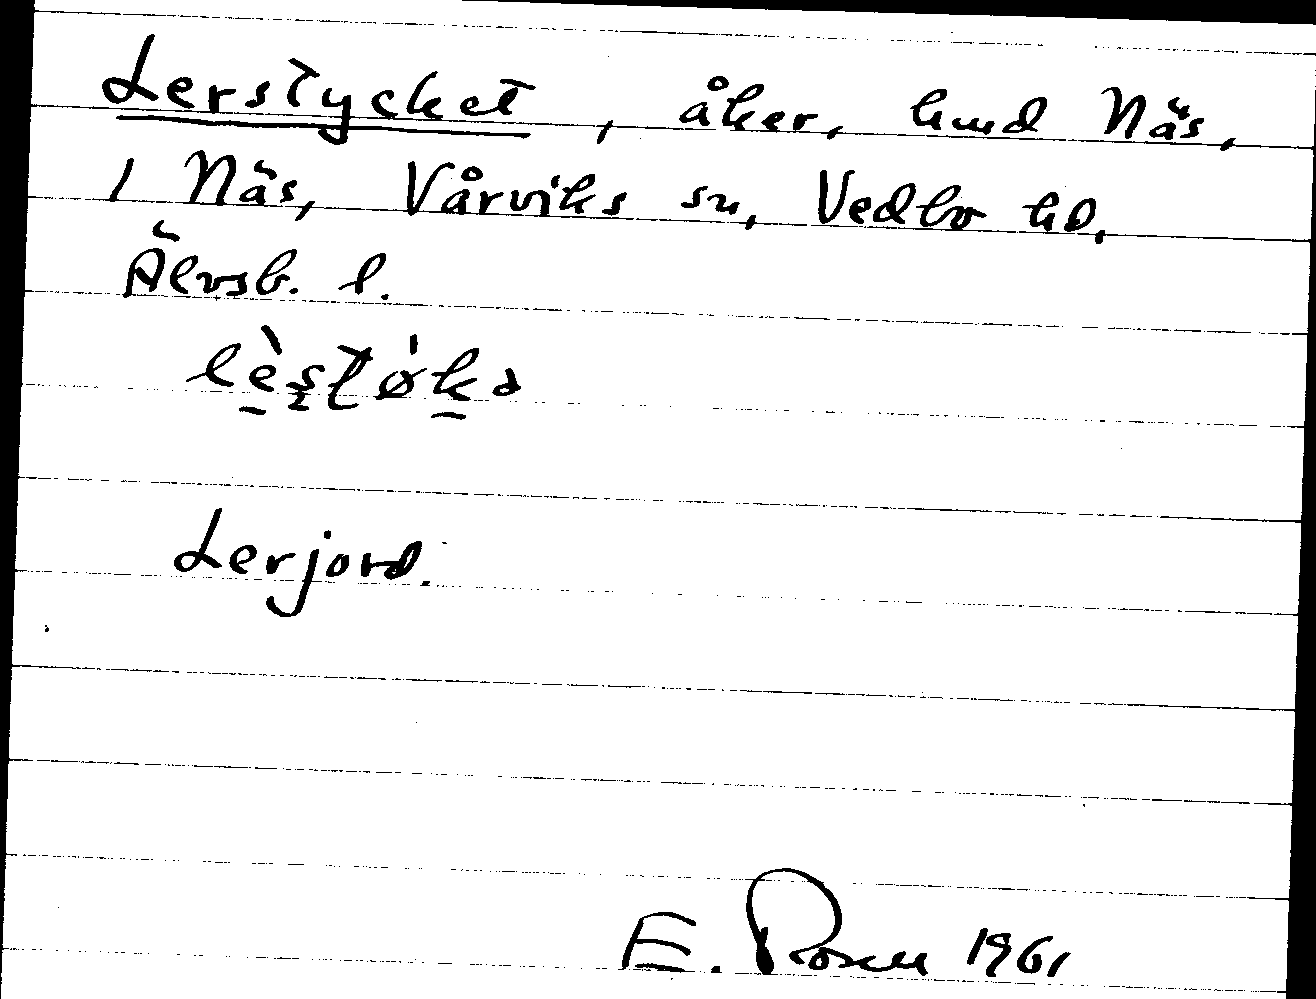 Lerstycket, åker, hmd Näs,
1 Näs, Vårviks sn, Vedbo hd,
Älvsb. l.
Lerjord.
E. Rosen 1961